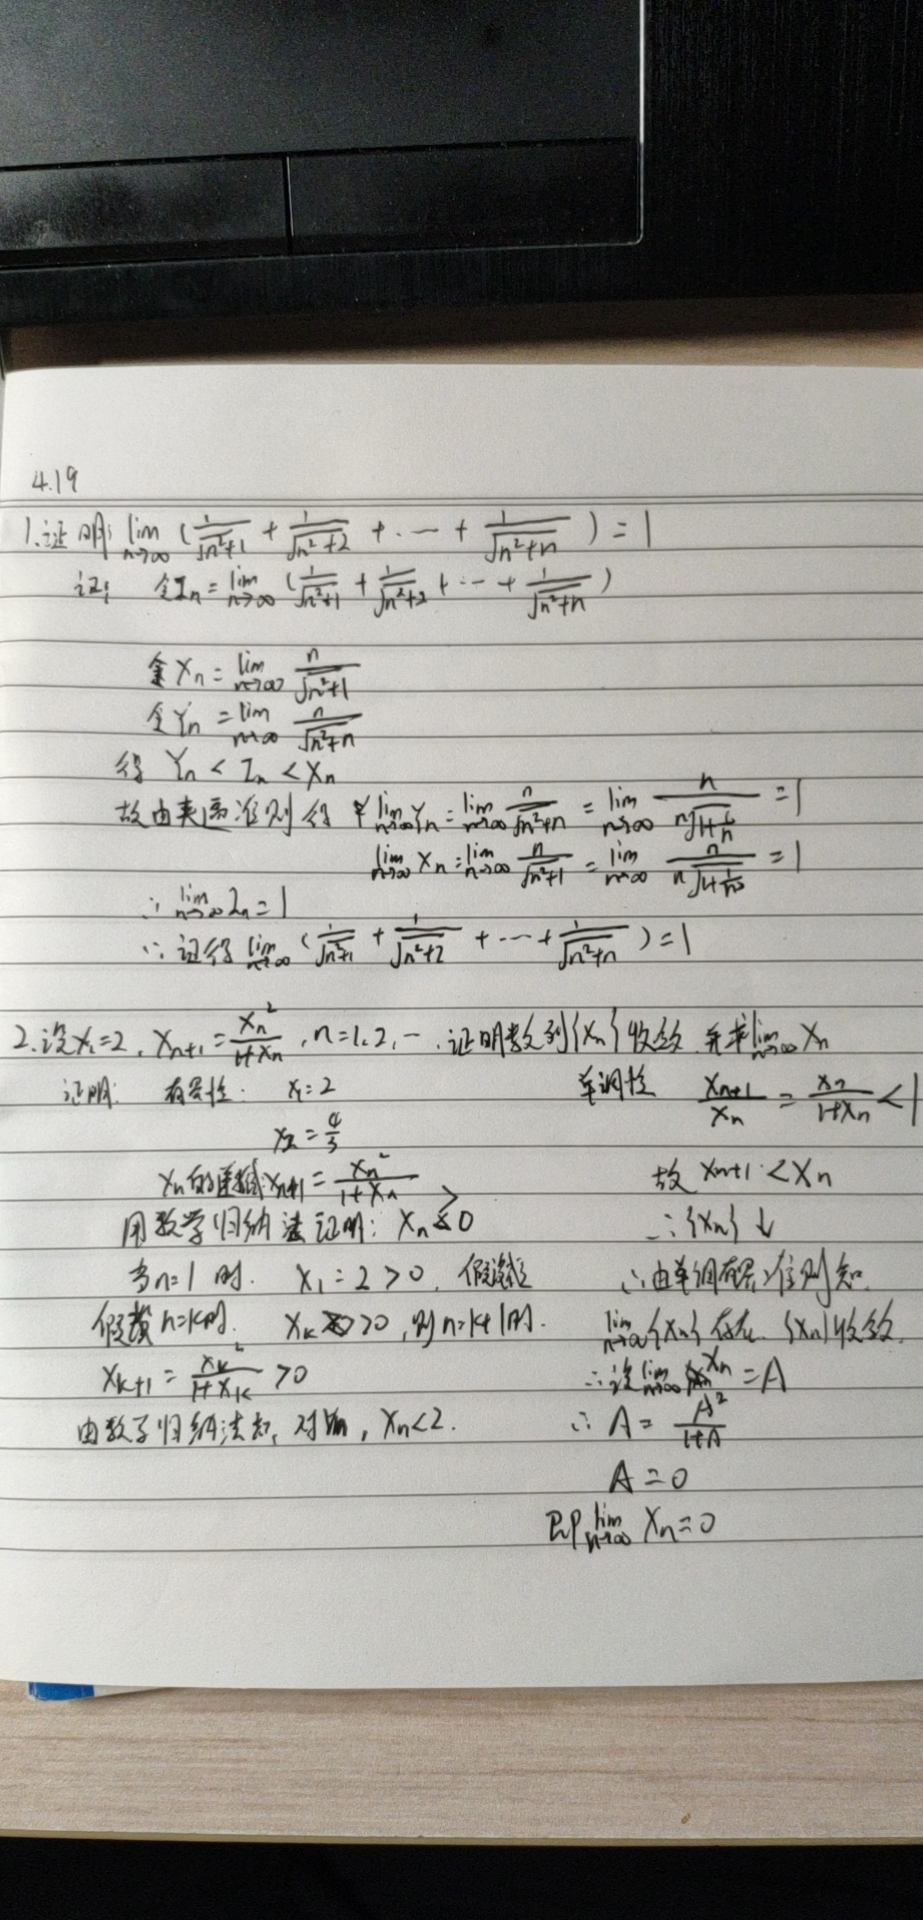 4.19
1.证明: lim n→∞ (1/√(n²+1) + 1/√(n²+2) + ... + 1/√(n²+n)) = 1
证: 令Zn = lim n→∞ (1/√(n²+1) + 1/√(n²+2) + ... + 1/√(n²+n))
令Xn = lim n→∞ n/√(n²+1)
令Yn = lim n→∞ n/√(n²+n)
得 Yn < Zn < Xn
故由夹逼准则得 lim n→∞ Yn = lim n→∞ n/√(n²+n) = lim n→∞ n/(n√(1+1/n)) = 1
lim n→∞ Xn = lim n→∞ n/√(n²+1) = lim n→∞ n/(n√(1+1/n²)) = 1
∴ lim n→∞ Zn = 1
∴ 证得 lim n→∞ (1/√(n²+1) + 1/√(n²+2) + ... + 1/√(n²+n)) = 1
2.设x₁=2, Xn+1 = Xn²/(1+Xn), n=1,2,... 证明数列{Xn}收敛 并求 lim n→∞ Xn
证明: 有界性: x₁=2
x₂ = 4/3
Xn的 Xn+1 = Xn²/(1+Xn)
用数学归纳法证明: Xn > 0
当n=1时. X₁=2>0, 假设
假设n=k时. Xk>0, 则n=k+1时.
Xk+1 = Xk²/(1+Xk) > 0
由数学归纳法知, 对∀n, Xn<2.
单调性 Xn+1/Xn = Xn/(1+Xn) < 1
故 Xn+1 < Xn
∴{Xn}↓
∴由单调有界准则知.
lim n→∞ {Xn} 存在. {Xn}收敛.
∴设 lim n→∞ Xn = A
∴ A = A²/(1+A)
A = 0
即 lim n→∞ Xn = 0